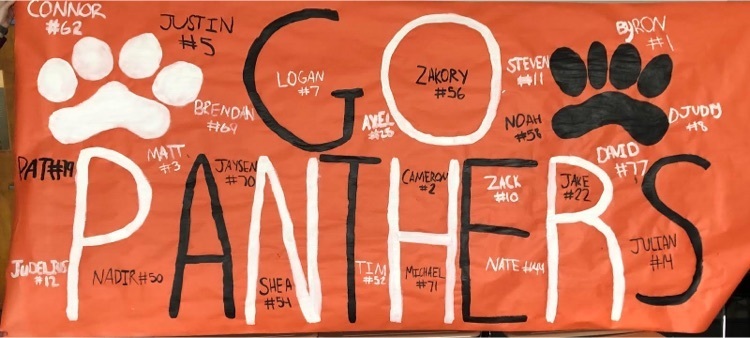 CONNOR
#62
JUSTIN
#5
GO
LOGAN
#7
ZAKORY
#56
STEVEN
#11
BYRON
#1
BRENDAN
#69
AXEL
#25
NOAH
#58
DJUDY
#8
MATT
#3
DAVID
#77
PANTHERS
PAT#19
JAYSEN
#70
CAMERON
#2
ZACK
#10
JAKE
#22
JULIAN
#14
#12
NADIR#50
SHEA
#54
TIM
#52
MICHAEL
#71
NATE#44